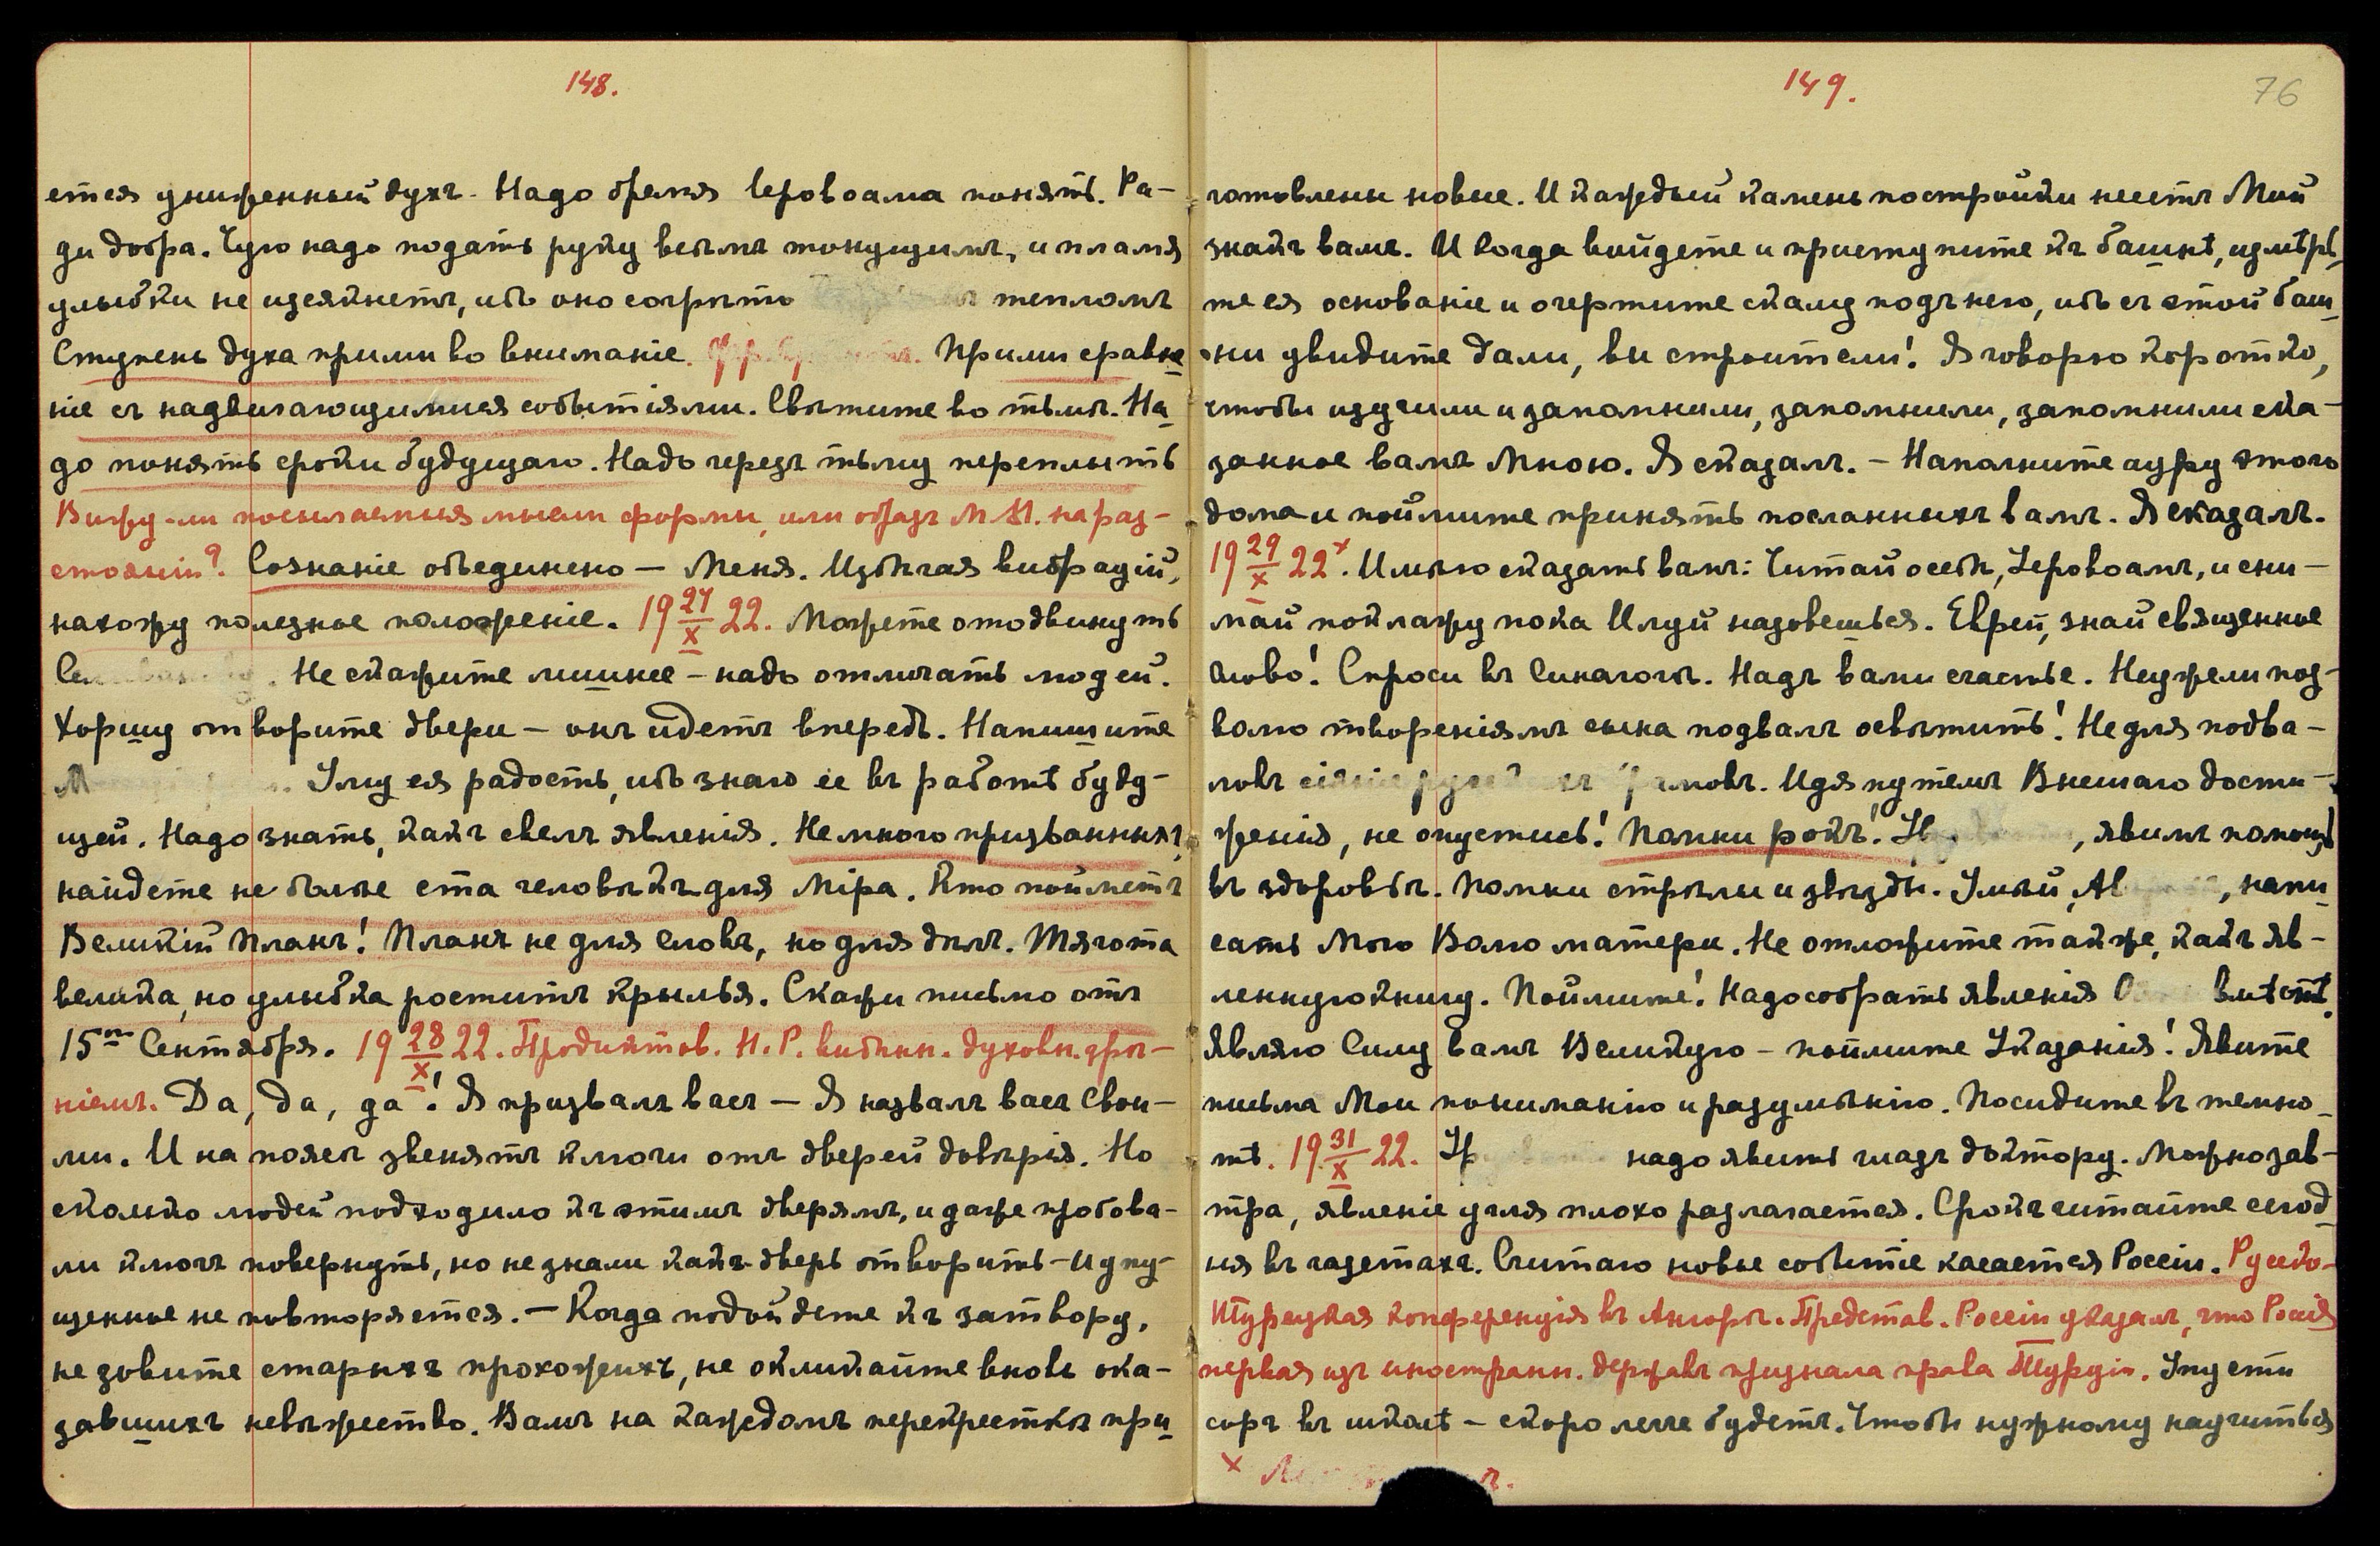 148.
ется униженный духъ. Надо бремя Іеровоама понять. Ра-
ди добра. Чую надо подать руку всѣмъ тонущимъ, и пламя
улыбки не изсякнетъ, ибо оно согрѣто тепломъ
Ступень духа прими во вниманіе. Прими сравне
ніе съ надвигающимися событіями. Свѣтите во тьмѣ. На
до понять сроки будущаго. Надо черезъ тьму переплыть
Вижу-ли посылаемыя мысли формы, или образъ М. М. на раз-
стояніи? Сознаніе объединено — Меня. Избѣгая вибрацій,
нахожу полезное положеніе. 19 27/X 22. Можете отодвинуть
Не скажите лишнее – надо отличать людей.
Хоршу отворите двери – онъ идетъ впередъ. Напишите
Улу ея радость, ибо знаю ее въ работѣ буду-
щей. Надо знать, какъ свелъ явленія. Не много призванныхъ,
найдете не болѣе ста человѣкъ для Міра. Кто пойметъ
Великій Планъ! Планъ не для словъ, но для дѣлъ. Тягота
велика, но улыбка роститъ крылья. Скажи письмо отъ
15го Сентября. 19 28/X 22. Продиктов. Н. Р. видѣнн. духовн. зрѣ-
ніемъ. Да, да, да! Я призвалъ васъ — Я назвалъ васъ Свои-
ми. И на поясѣ звенятъ ключи отъ дверей довѣрія. Но
сколько людей подходило къ этимъ дверямъ, и даже пробова-
ли ключъ повернуть, но не знали какъ дверь отворить – и упу-
щенное не повторяется. — Когда подойдете къ затвору,
не зовите старыхъ прохожихъ, не окликайте вновь ока-
завшихъ невѣжество. Вамъ на каждомъ перекресткѣ при
149.
76
готовлены новые. И каждый камень постройки несетъ Мой
знакъ вамъ. И когда войдете и приступите къ башнѣ, измѣрь
те ея основаніе и очертите скалу подъ нею, ибо съ этой баш
ни увидите дали, вы строители! Я говорю коротко,
чтобы изучили и запомнили, запомнили, запомнили ска-
занное вамъ Мною. Я сказалъ. – Наполните ауру этого
дома и поймите принять посланныхъ вамъ. Я сказалъ.
19 29/X 22 x. Имѣю сказать вамъ: Читай осеѣ, Іеровоамъ, и сни-
май поклажу пока Илуй назовешься. Еврей, знай священное
слово! Спроси въ Синагогѣ. Надъ вами счастье. Неужели поз-
волю твореніямъ сына подвалъ освѣтить! Не для подва-
ловъ сіяніе Идя путемъ Внешаго дости-
женія, не опустись! Помни рокъ! , явимъ помощь
въ здоровьѣ. Помни стрѣлы и звѣзды. Умѣй, , напи
сать Мою Волю матери. Не отложите также, какъ яв-
ленную книгу. Поймите! Надо собрать явленія вмѣстѣ.
Являю Силу вамъ Великую – поймите Указанія! Явите
письма Мои пониманію и разумѣнію. Посидите въ темно-
тѣ. 19 31/X 22. надо явить глазъ доктору. Можно зав-
тра, явленіе угля плохо разлагается. Срокъ читайте сегод
ня въ газетахъ. Считаю новое событіе касается Россіи. Руско-
Турецкая конференція въ Ангорѣ. Представ. Россіи указалъ, что Россія
первая изъ иностранн. державъ признала права Турціи. Упусти
соръ въ школѣ – скоро легче будетъ. Чтобы нужному научиться
x